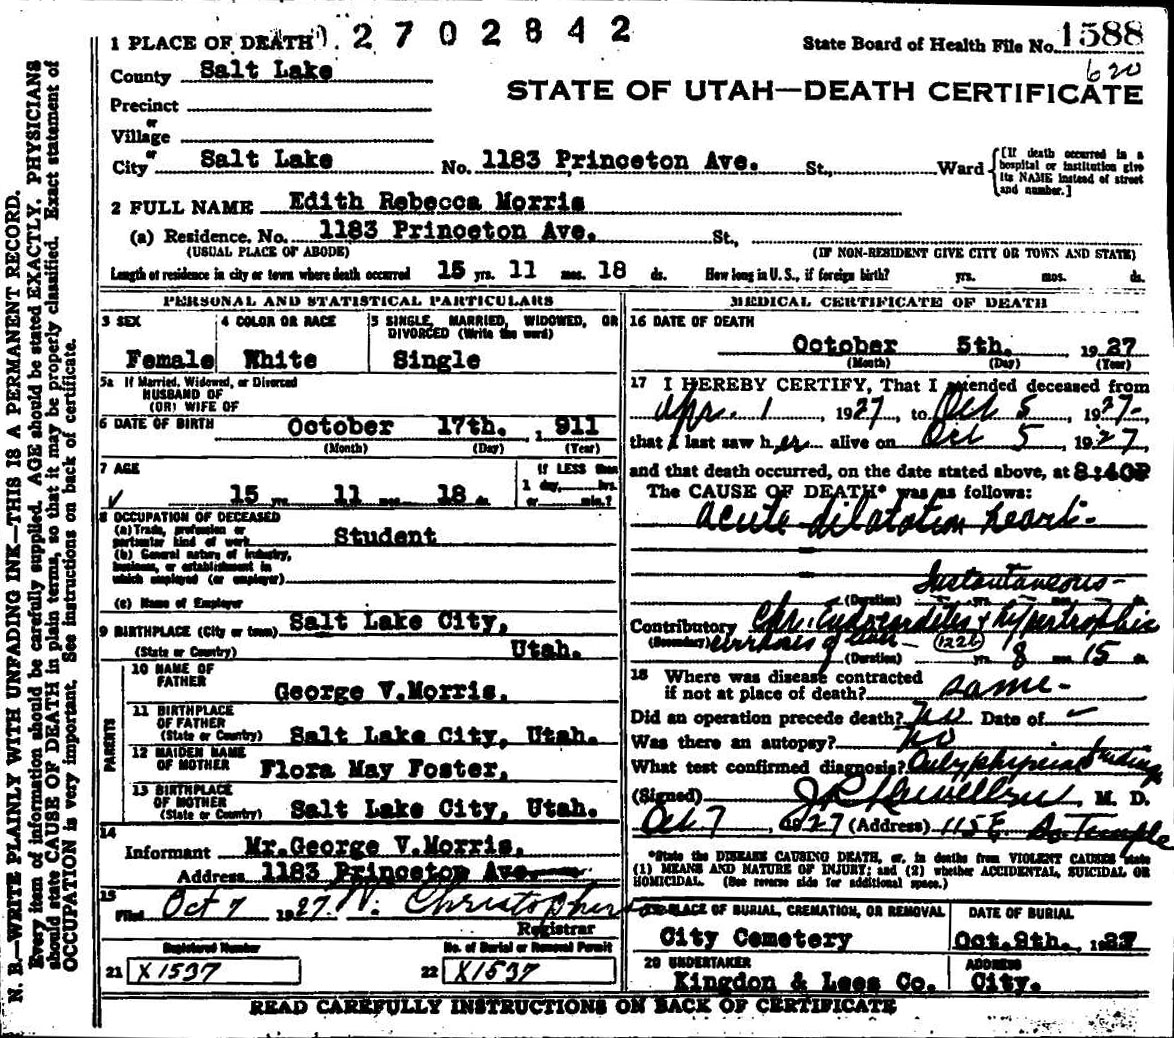 2702842
1 PLACE OF DEATH
State Board of Health File No. 1588
620
County Salt Lake
STATE OF UTAH—DEATH CERTIFICATE
Precinct
or
Village
or
City Salt Lake No. 1183 Princeton Ave. St., Ward {[If death occurred in a hospital or institution give its NAME instead of street and number.]
2 FULL NAME Edith Rebecca Morris
(a) Residence. No. 1183 Princeton Ave. St.,
(USUAL PLACE OF ABODE) (IF NON-RESIDENT GIVE CITY OR TOWN AND STATE)
Length of residence in city or town where death occurred 15 yrs. 11 mos. 18 ds. How long in U. S., if foreign birth? yrs. mos. ds.
PERSONAL AND STATISTICAL PARTICULARS
3 SEX
Female
4 COLOR OR RACE
White
5 SINGLE, MARRIED, WIDOWED, OR
DIVORCED (Write the word)
Single
5a If Married, Widowed, or Divorced
HUSBAND OF
(OR) WIFE OF
6 DATE OF BIRTH October 17th. 1 911
(Month) (Day) (Year)
7 AGE
15 yrs. 11 mos. 18 ds.
If LESS than
1 day, hrs.
or min.?
8 OCCUPATION OF DECEASED
(a) Trade, profession or
particular kind of work Student
(b) General nature of industry,
business, or establishment in
which employed (or employer)
(c) Name of Employer
9 BIRTHPLACE (City or town) Salt Lake City,
(State or Country) Utah.
PARENTS
10 NAME OF
FATHER George V.Morris.
11 BIRTHPLACE
OF FATHER
(State or Country) Salt Lake City, Utah.
12 MAIDEN NAME
OF MOTHER Flora May Foster.
13 BIRTHPLACE
OF MOTHER
(State or Country) Salt Lake City, Utah.
14
Informant Mr.George V.Morris.
Address 1183 Princeton Ave.
15
Filed Oct 7 1927
Registrar
Registered Number
21 X1537
No. of Burial or Removal Permit
22 X1537
MEDICAL CERTIFICATE OF DEATH
16 DATE OF DEATH
October 5th. 1927
(Month) (Day) (Year)
17 I HEREBY CERTIFY, That I attended deceased from
Apr. 1, 1927, to Oct 5, 1927
that I last saw her alive on Oct 5, 1927,
and that death occurred, on the date stated above, at 8:40P
The CAUSE OF DEATH* was as follows:
acute dilatation heart-
Instantaneous-
(Duration) yrs. mos. ds.
Contributory Chr. Endocarditis & hypertrophic
(Secondary) cirrhosis of 122b
(Duration) yrs. 8 mos. 15 ds.
18 Where was disease contracted
if not at place of death? same-
Did an operation precede death? no Date of
Was there an autopsy? no
What test confirmed diagnosis? Only physical findings
(Signed) M. D.
Oct 7, 1927 (Address) 115 E So Temple
*State the DISEASE CAUSING DEATH, or, in deaths from VIOLENT CAUSES state
(1) MEANS AND NATURE OF INJURY; and (2) whether ACCIDENTAL, SUICIDAL OR
HOMICIDAL. (See reverse side for additional space.)
PLACE OF BURIAL, CREMATION, OR REMOVAL
City Cemetery
DATE OF BURIAL
Oct.9th. 1927
20 UNDERTAKER
Kingdon & Lees Co.
ADDRESS
City.
READ CAREFULLY INSTRUCTIONS ON BACK OF CERTIFICATE
N. B.—WRITE PLAINLY WITH UNFADING INK—THIS IS A PERMANENT RECORD.
Every item of information should be carefully supplied. AGE should be stated EXACTLY. PHYSICIANS
should state CAUSE OF DEATH in plain terms, so that it may be properly classified. Exact statement of
OCCUPATION is very important. See instructions on back of certificate.